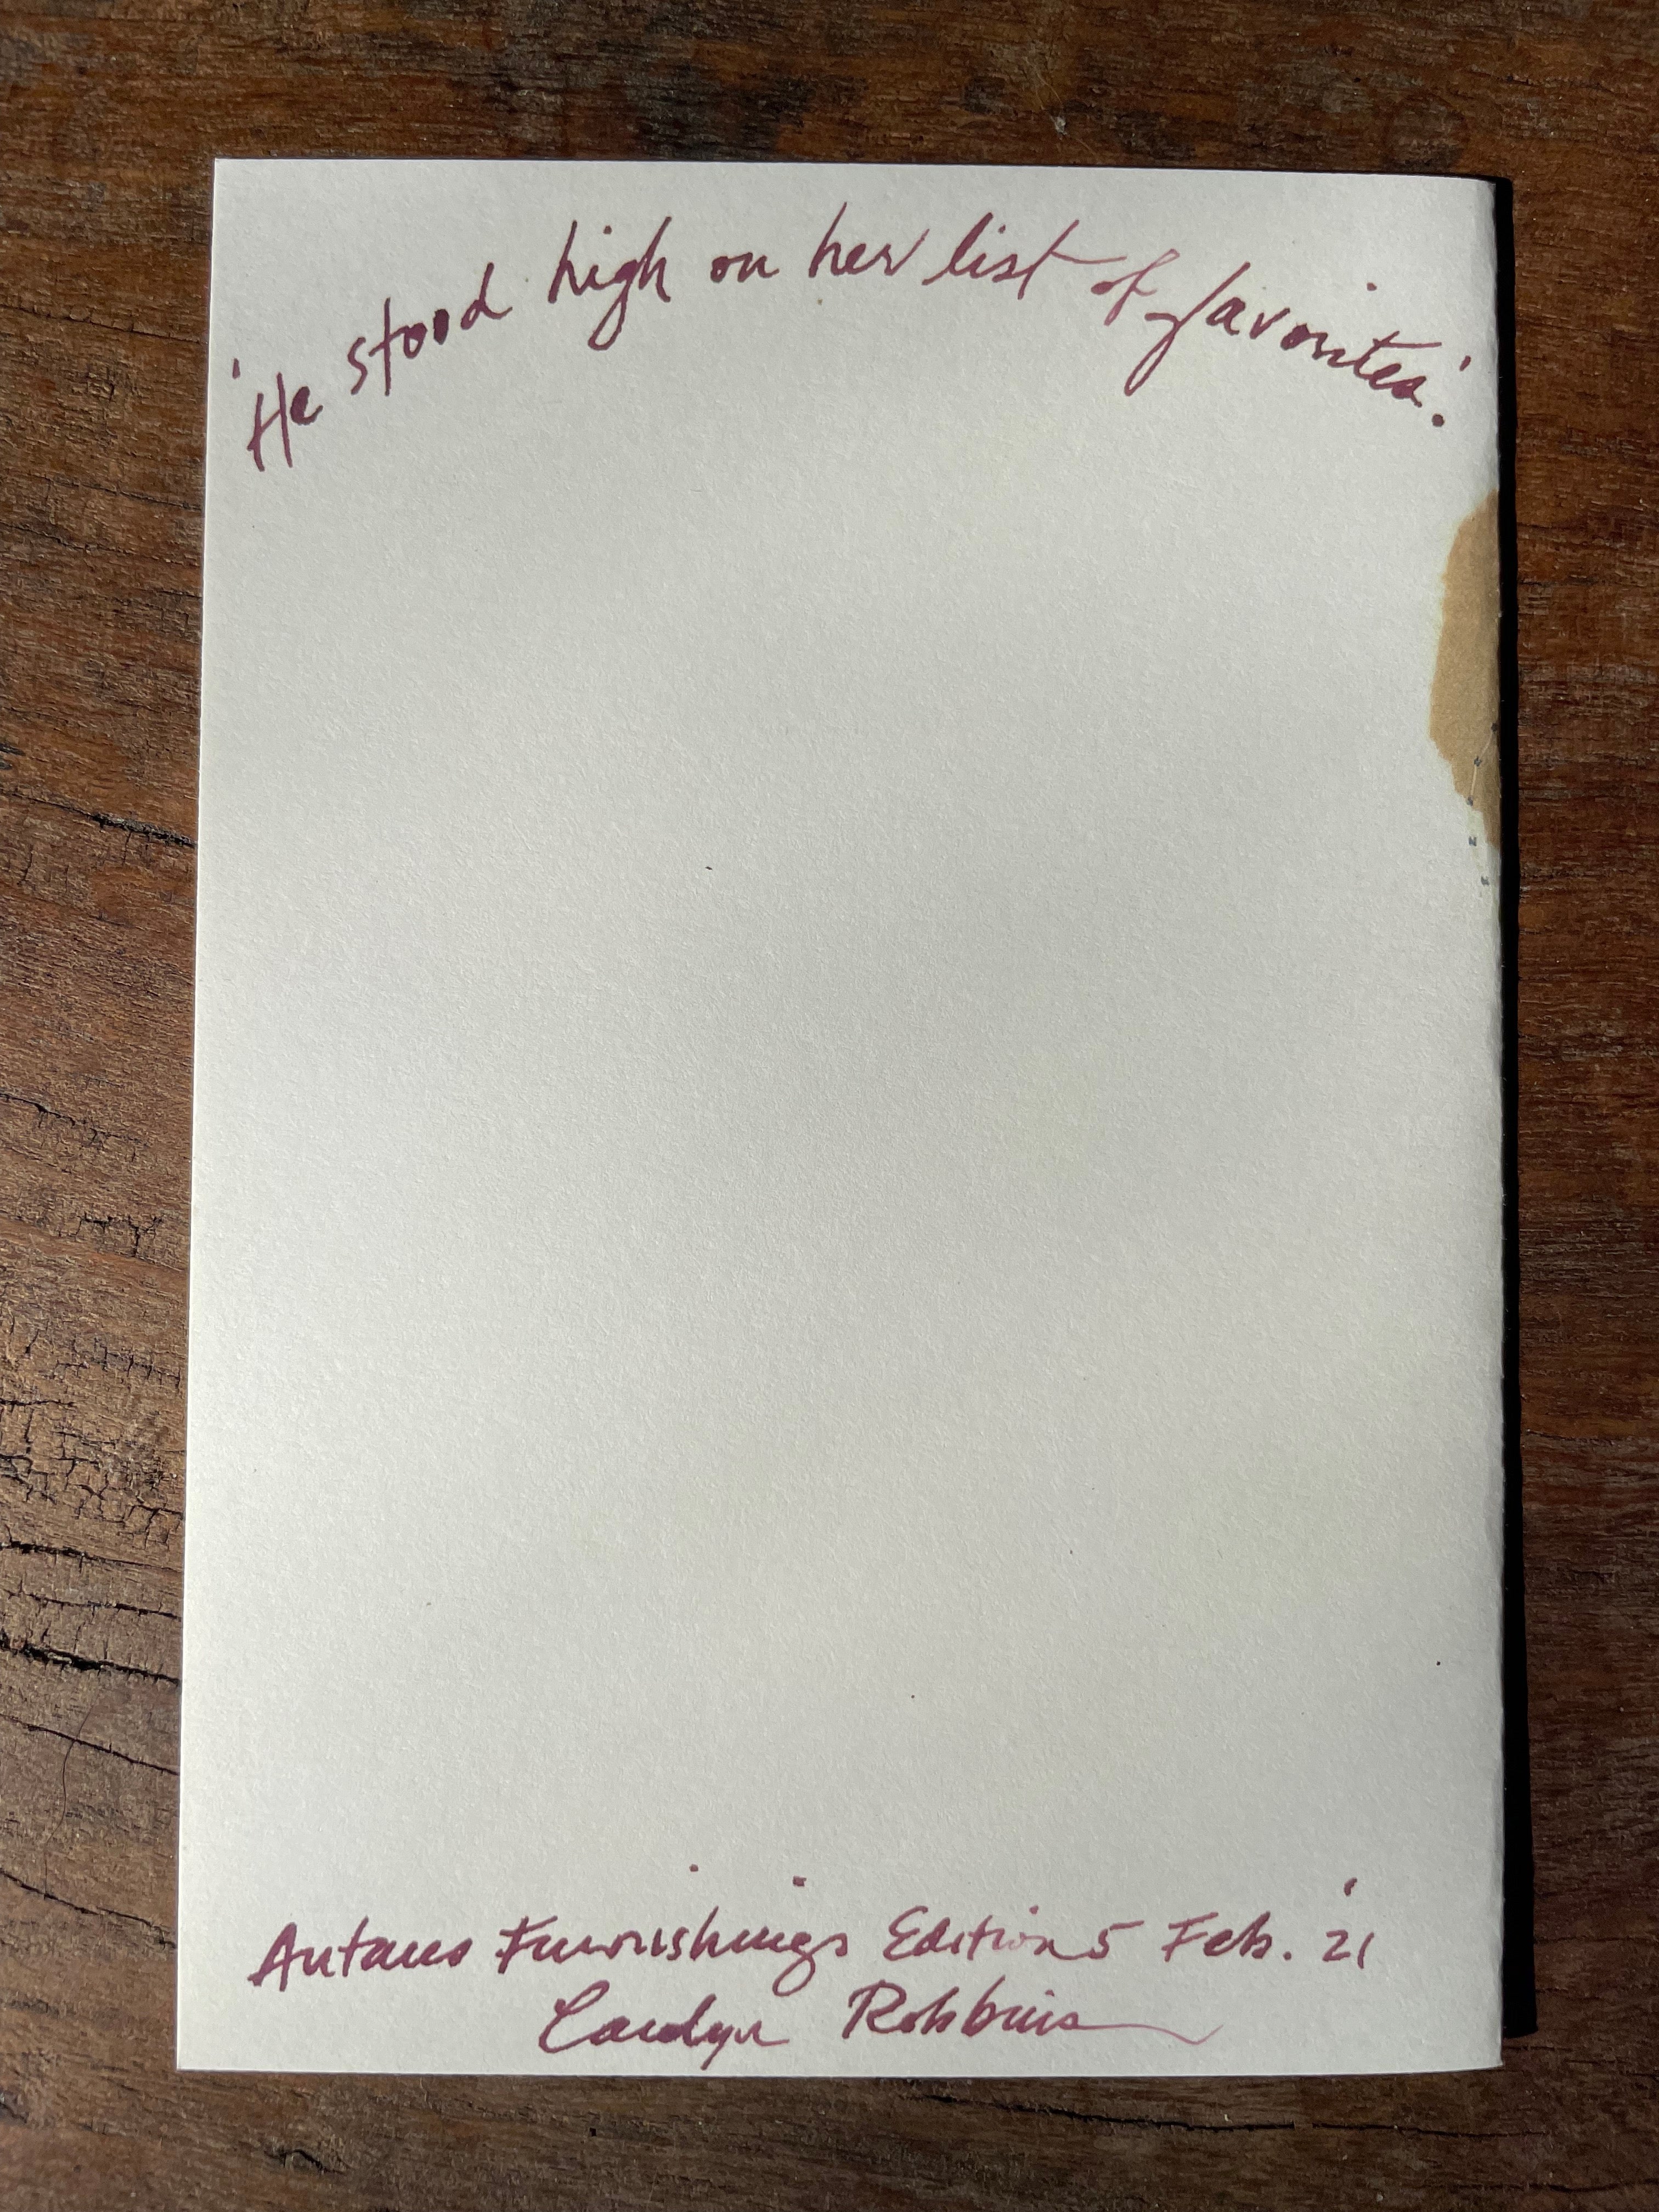 'He stood high on her list of favorites'.
Furnishings Edition 5 Feb. '21
Carolyn Robbins